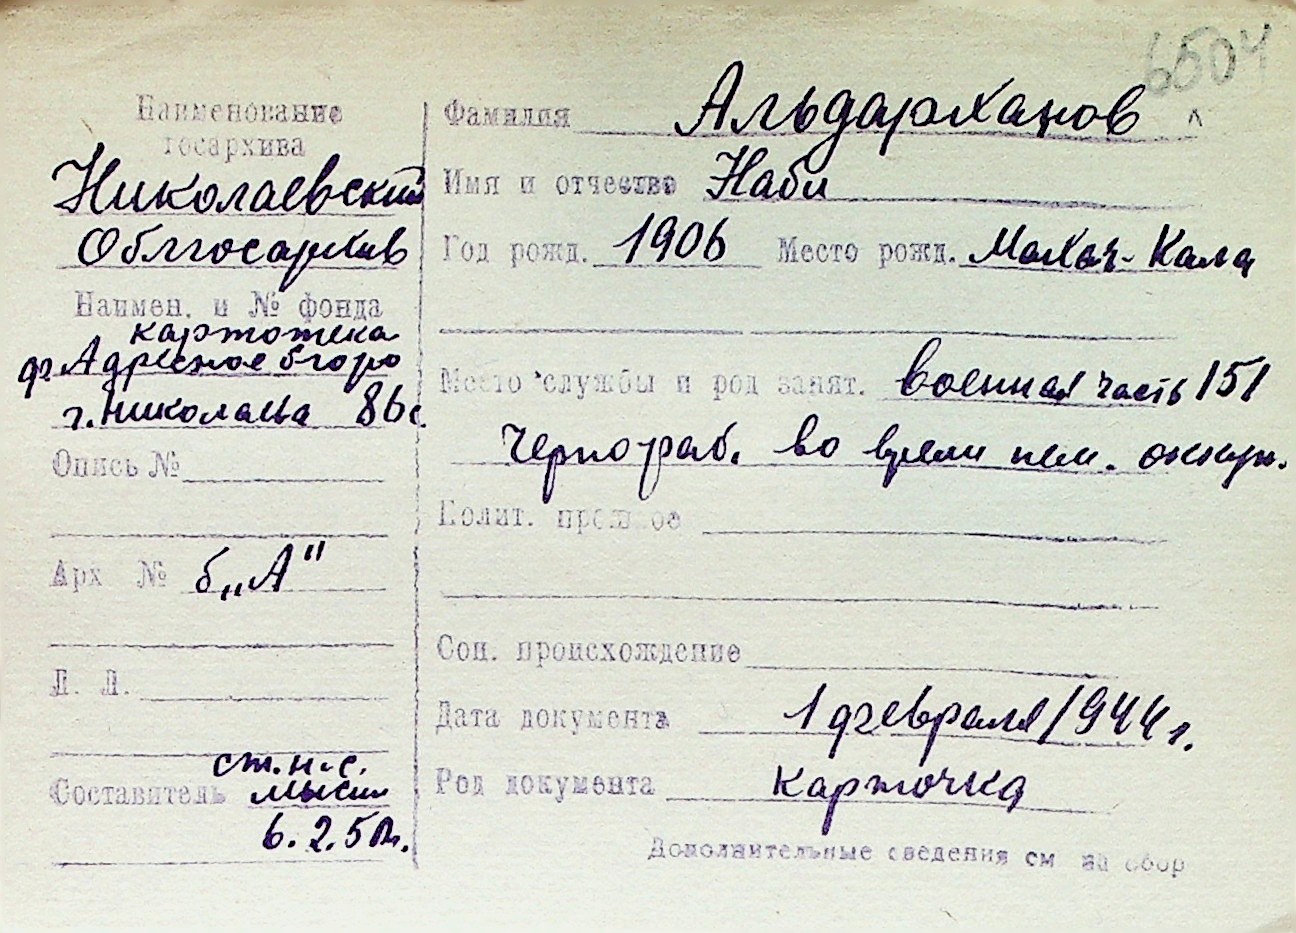 6504
Наименование
госархива
Николаевский
Облгосархив
Наимен. и № фонда
картотека
ф. Адресное бюро
г. Николаева 86с.
Опись №
Арх № б „А"
Л. Л.
ст. н.с.
Составитель
6. 2. 50г.
Фамилия Альдарханов
Имя и отчество Наби
Год рожд. 1906 Место рожд. Махач-Кала
Место службы и род занят. военная часть 151
Чернораб. во время нем. оккуп.
Полит. прошлое
Соц. происхождение
Дата документа 1 февраля 1944 г.
Род документа карточка
Дополнительные сведения см на обор